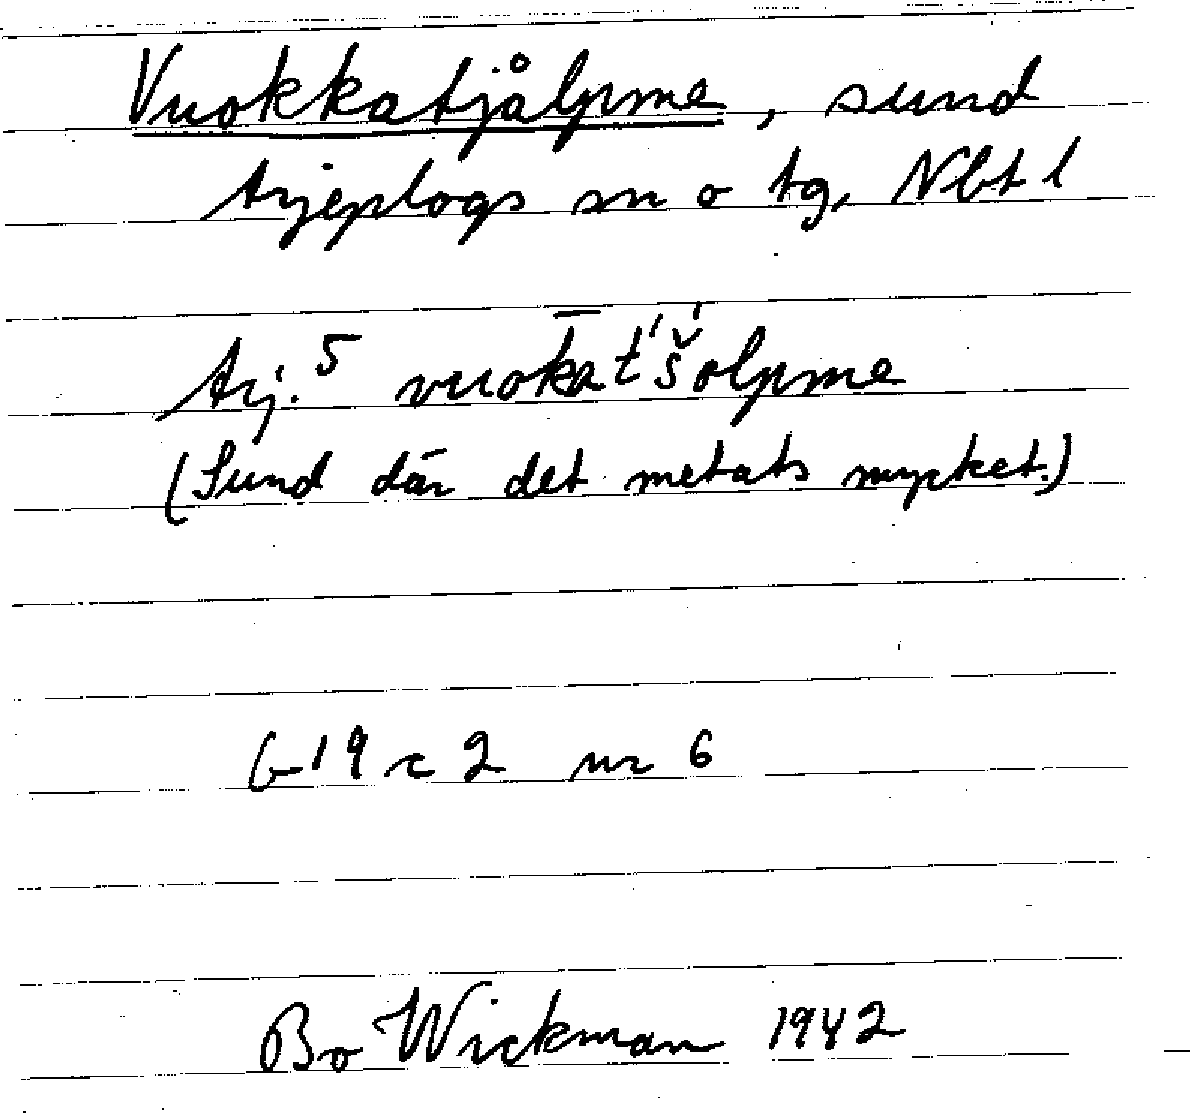 Vuokkatjålpme, sund
Arjeplogs sn o tg, Nbt l
Arj.⁵ vuok̄at́'š́olpme
(Sund där det metats mycket.)
G 19 c 2 nr 6
Bo Wickman 1942